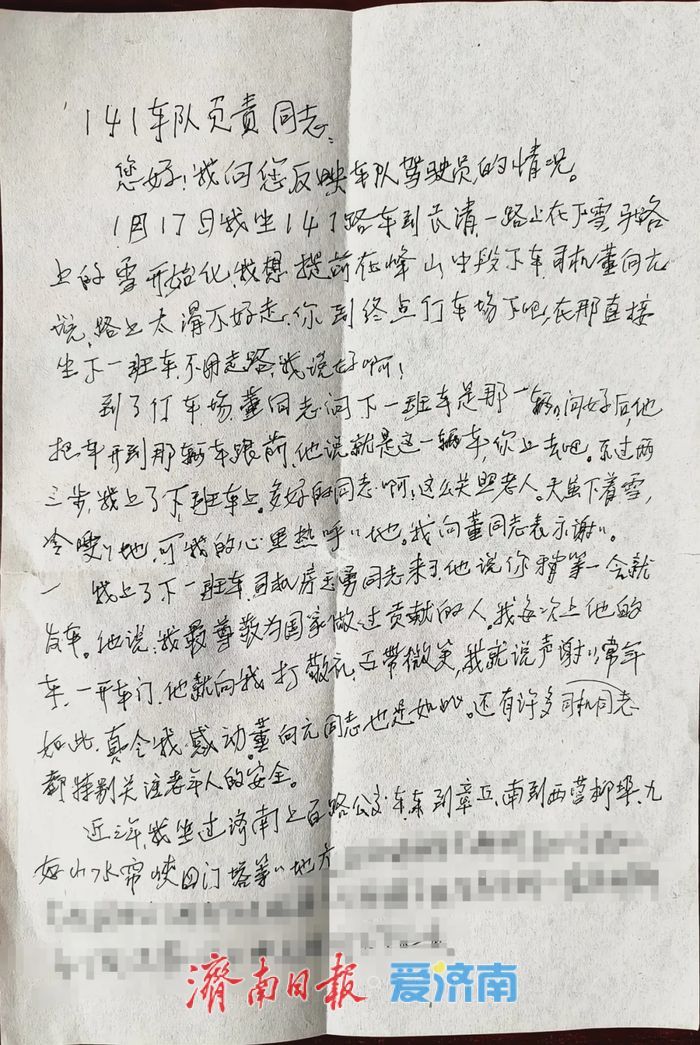 141车队负责同志:
您好!我向您反映车队驾驶员的情况。
1月17日我坐141路车到长清,一路上在下雪,马路
上的雪开始化,我想提前在峰山中段下车,司机董向元
说,路上太滑不好走,你到终点停车场下吧,在那直接
坐下一班车,不用走路,我说好啊!
到了停车场,董同志问下一班车是那一辆,问好后,他
把车开到那辆车跟前,他说就是这一辆车,你上去吧。不过两
三步,我上了下班车上。多好的同志啊!这么关照老人。天虽下着雪,
冷嗖〃地,可我的心里热呼〃地。我向董同志表示谢〃。
我上了下一班车,司机房玉勇同志来了,他说你稍等一会就
发车。他说,我最尊敬为国家做过贡献的人。我每次上他的
车,一开车门,他就向我打敬礼,面带微笑,我就说声谢〃,常年
如此,真令我感动。董向元同志也是如此。还有许多司机同志
都特别关注老年人的安全。
近三年,我坐过济南上百路公交车,东到章丘,南到西营柳埠、九
如山水帘峡四门塔等〃地方
济南日报 爱济南